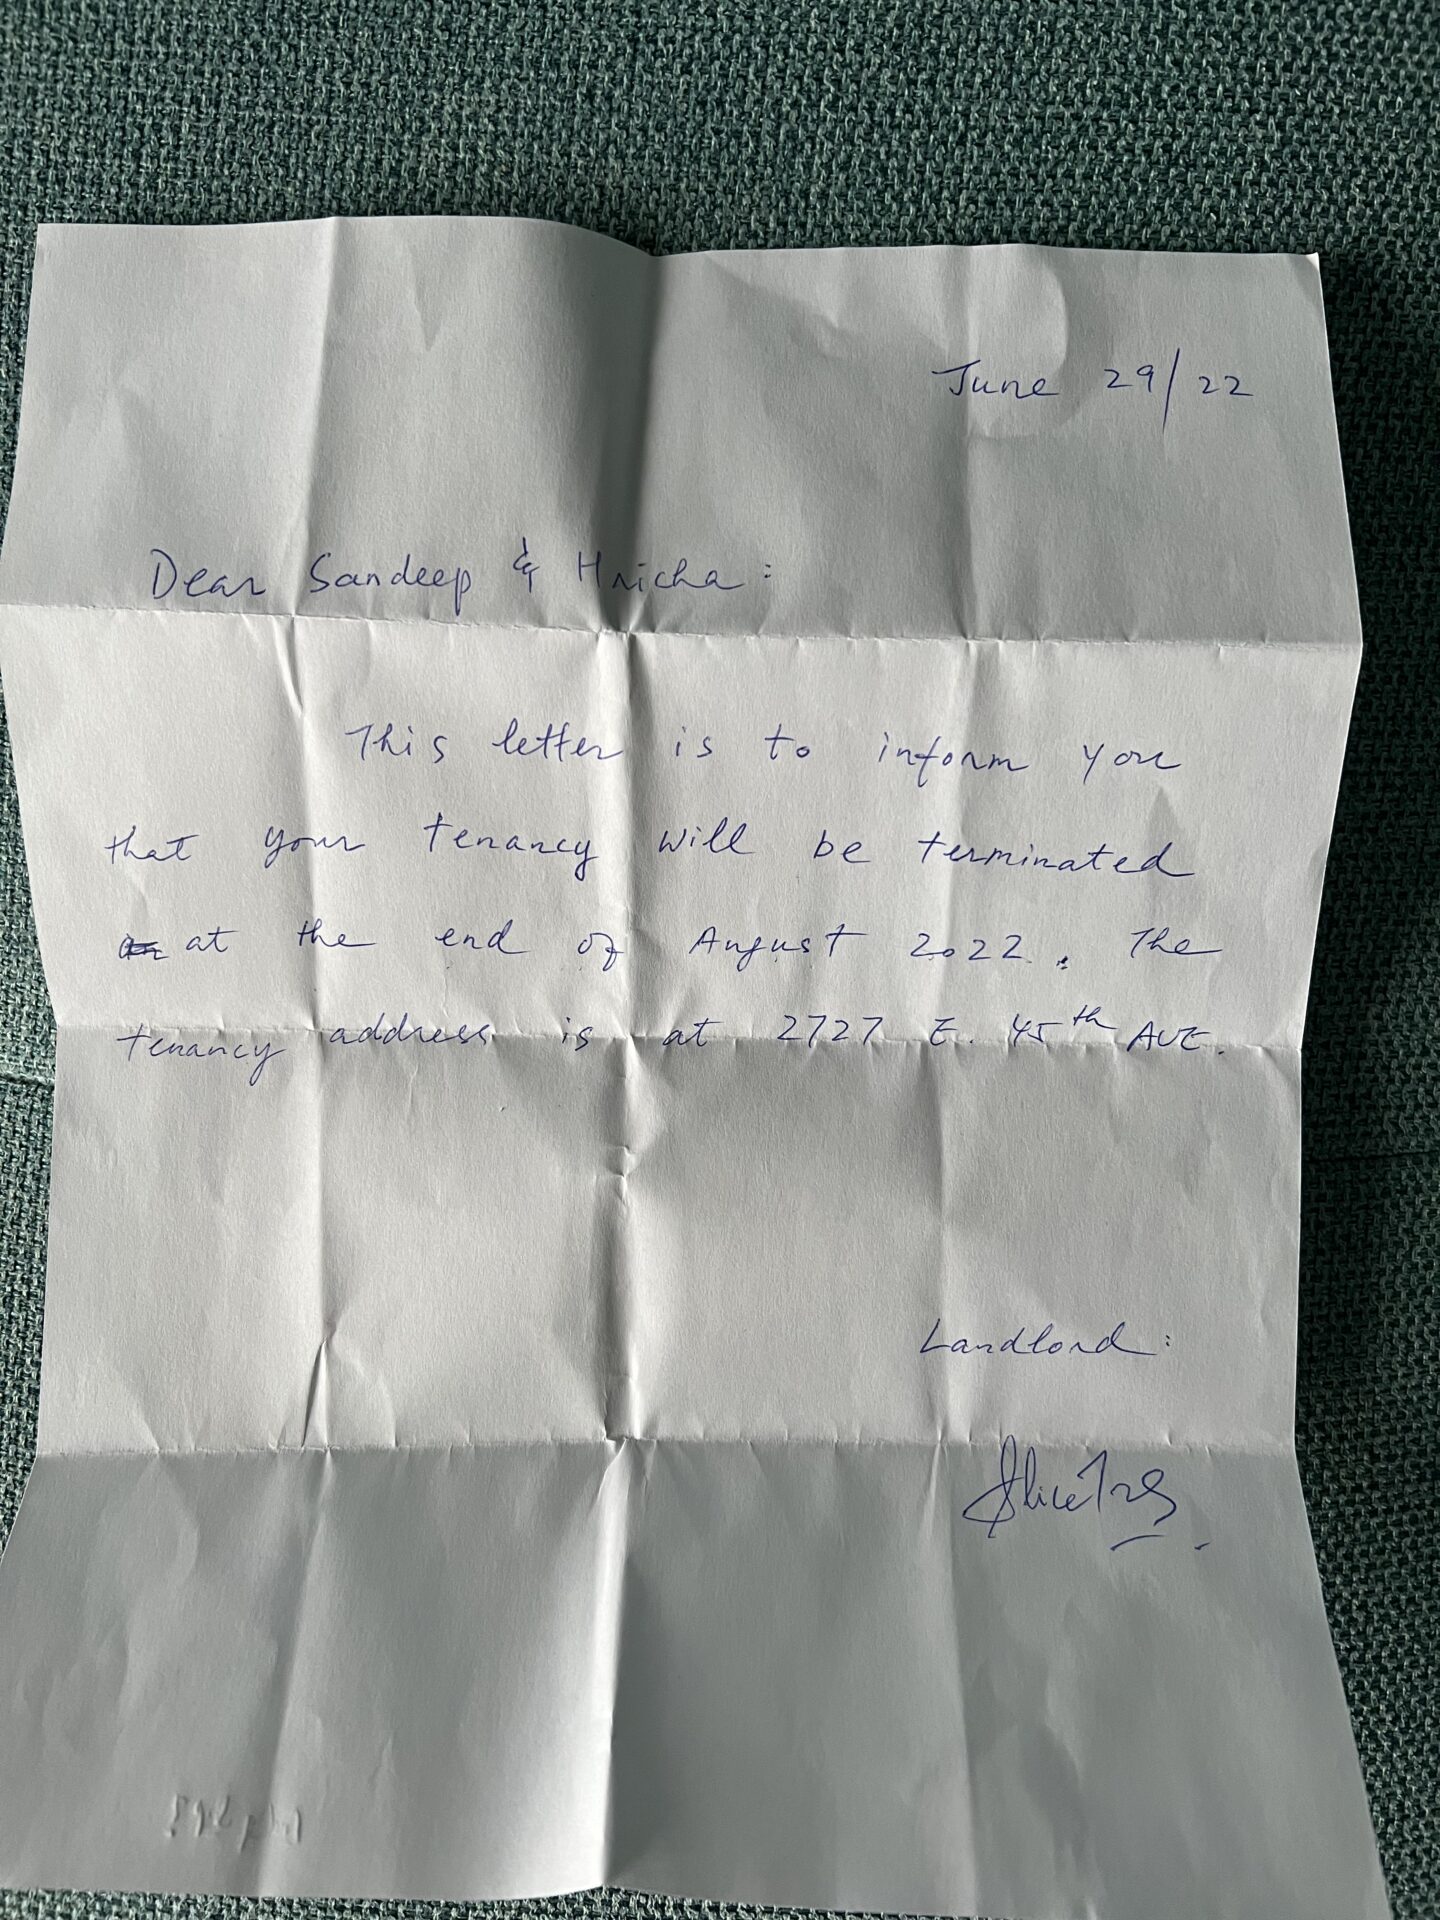 June 29/22
Dear Sandeep & Hricha:
This letter is to inform you
that your tenancy will be terminated
at the end of August 2022. The
tenancy address is at 2727 E. 45th AVE.
Landlord: